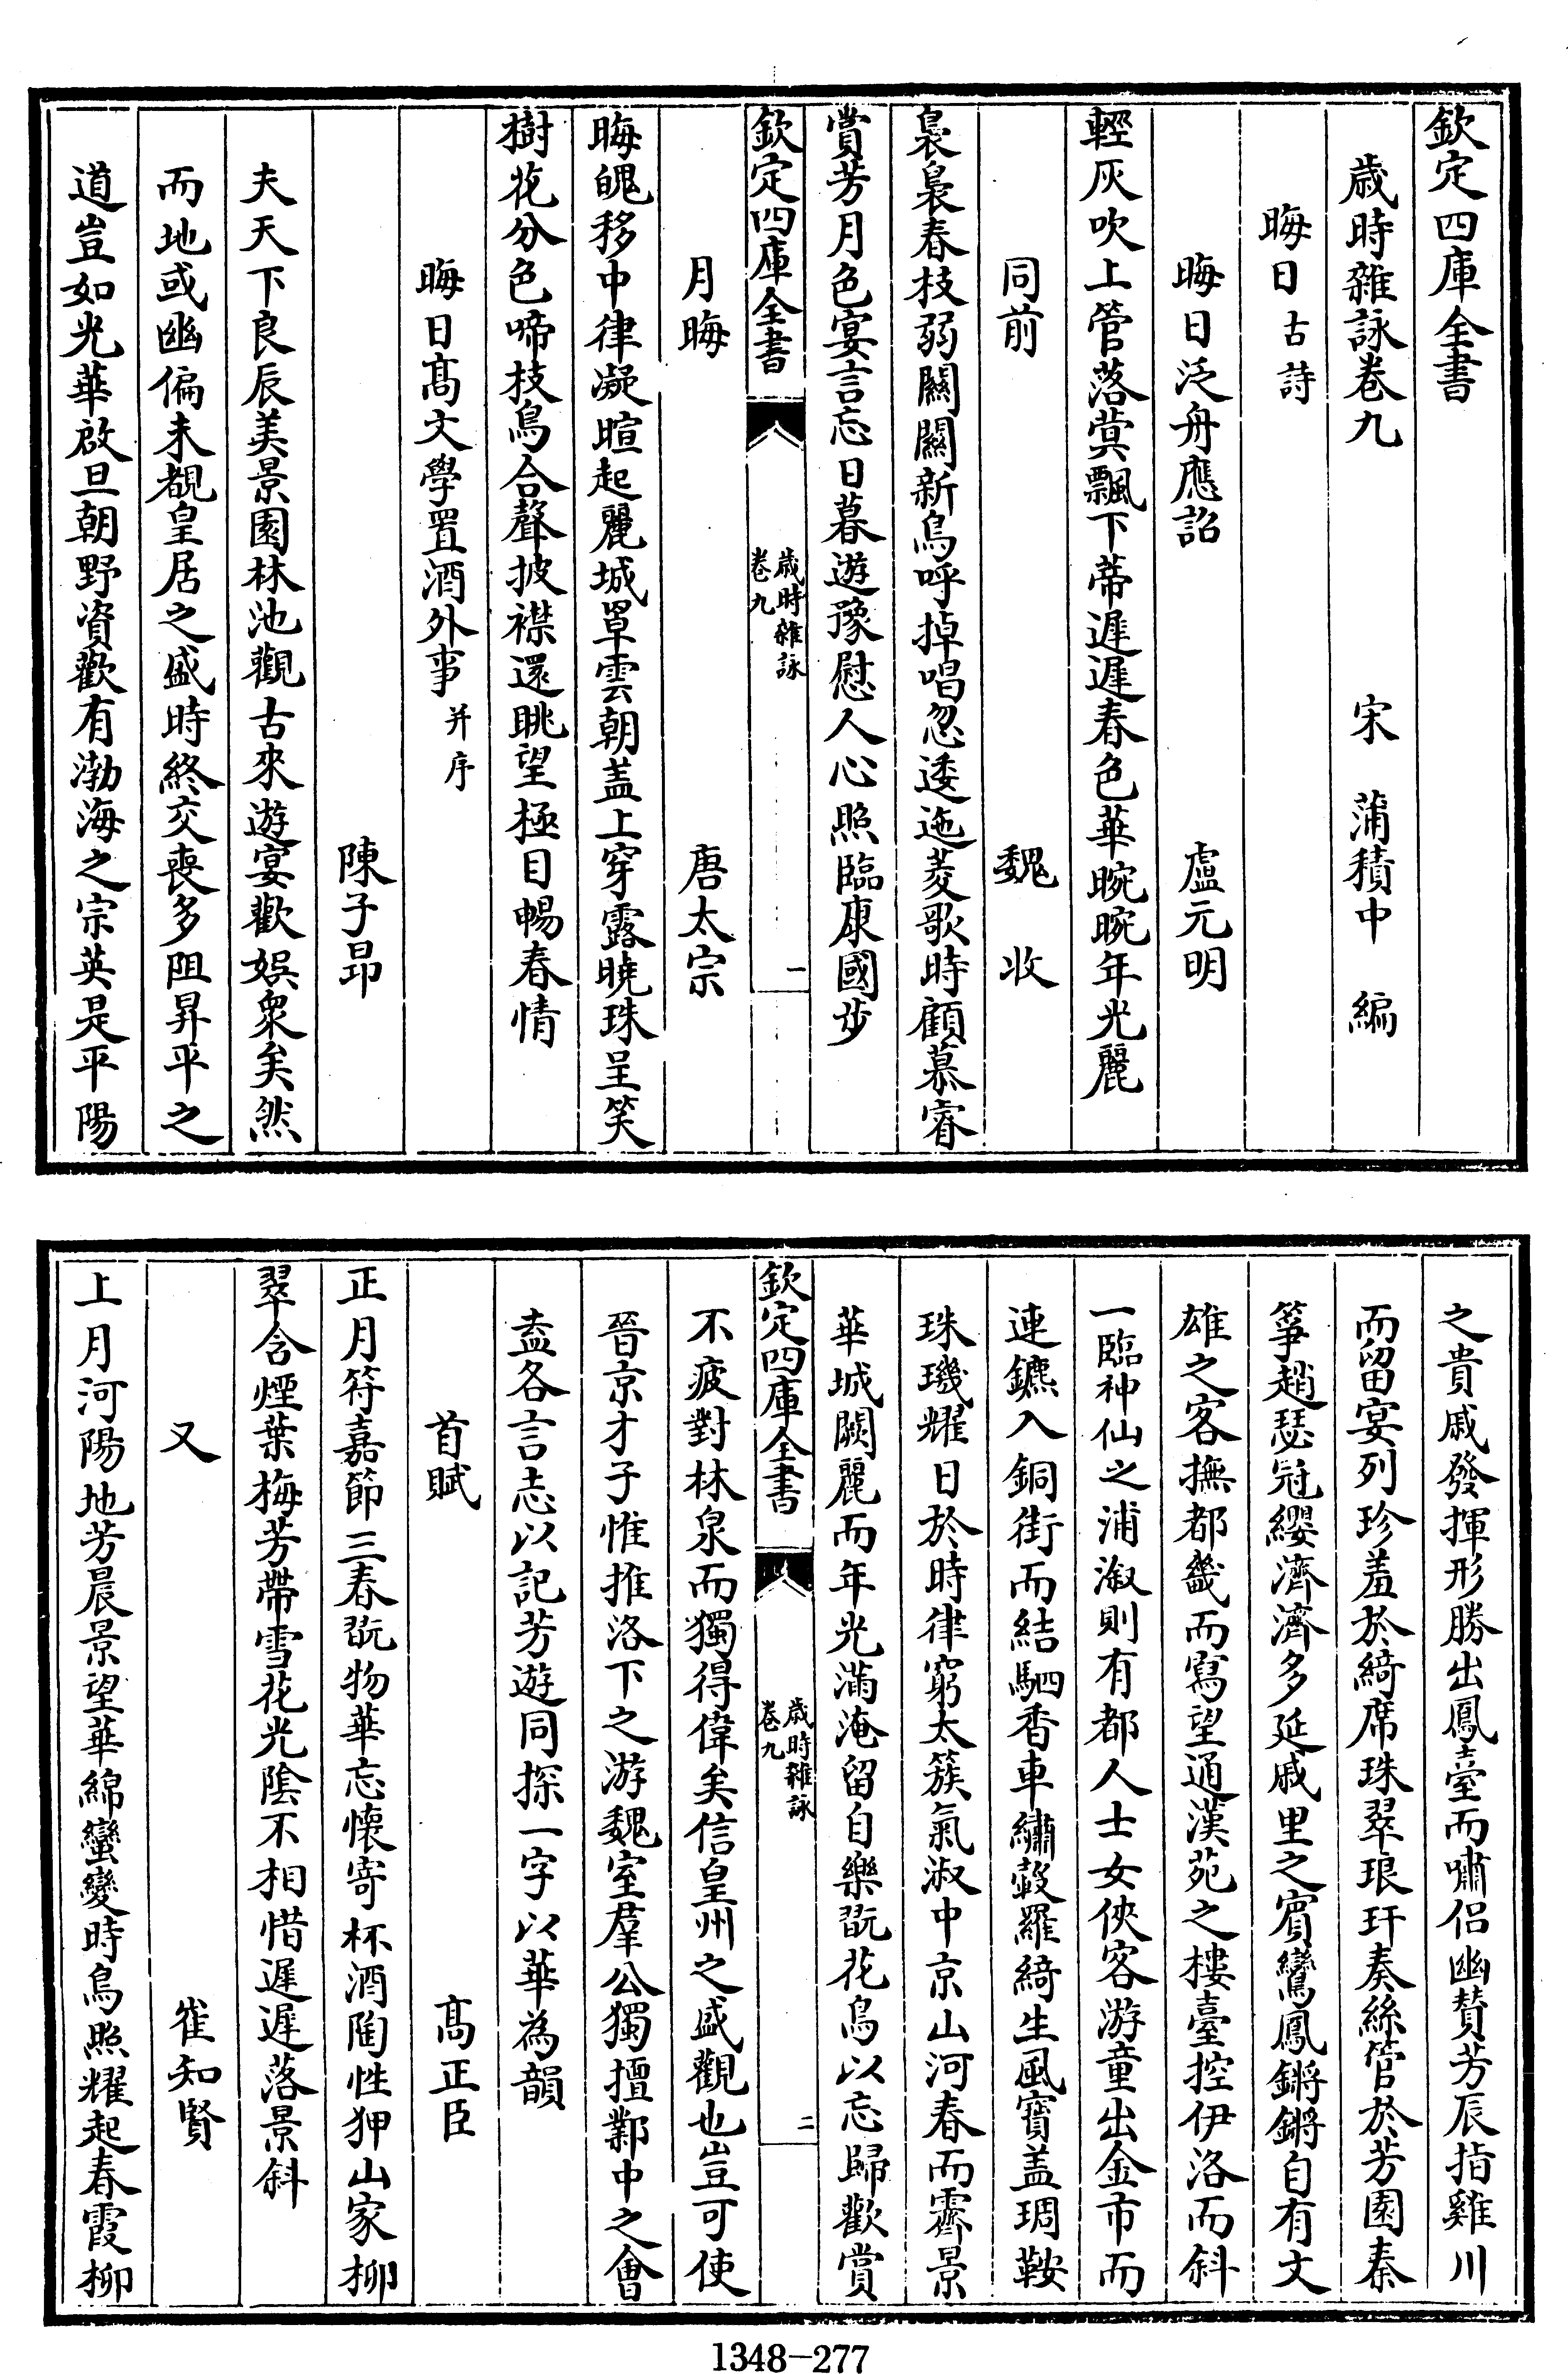 欽定四庫全書
歲時雜詠卷九
宋 蒲積中 編
晦日古詩
晦日泛舟應詔 盧元明
輕灰吹上管落蓂飄下蒂遲遲春色華晼晼年光麗
同前 魏收
裊裊春枝弱關關新鳥呼掉唱忽逶迤菱歌時顧慕睿
賞芳月色宴言忘日暮遊豫慰人心照臨康國步
欽定四庫全書 歲時雜詠 卷九 一
月晦 唐太宗
晦魄移中律凝暄起麗城罩雲朝盖上穿露曉珠呈笑
樹花分色啼枝鳥合聲披襟還眺望極目暢春情
晦日髙文學置酒外事并序
陳子昻
夫天下良辰美景園林池觀古來遊宴歡娛衆矣然
而地或幽偏未覩皇居之盛時終交喪多阻昇平之
道豈如光華啟旦朝野資歡有渤海之宗英是平陽
之貴戚發揮形勝出鳳臺而嘯侣幽賛芳辰指雞川
而留宴列珍羞於綺席珠翠琅玕奏絲管於芳園秦
箏趙瑟冠纓濟濟多延戚里之賓鸞鳳鏘鏘自有文
雄之客撫都畿而寫望通漢苑之樓臺控伊洛而斜
一臨神仙之浦溆則有都人士女俠客游童出金市而
連鑣入銅街而結駟香車繡轂羅綺生風寳盖琱鞍
珠璣耀日於時律窮太簇氣淑中京山河春而霽景
華城闕麗而年光滿淹留自樂翫花鳥以忘歸歡賞
欽定四庫全書 歲時雜詠 卷九 二
不疲對林泉而獨得偉矣信皇州之盛觀也豈可使
晉京才子惟推洛下之游魏室羣公獨擅鄴中之會
盍各言志以記芳遊同探一字以華為韻
首賦 髙正臣
正月符嘉節三春翫物華忘懷寄杯酒陶性狎山家柳
翠含煙葉梅芳帶雪花光隂不相惜遲遲落景斜
又 崔知賢
上月河陽地芳晨景望華綿蠻變時鳥照耀起春霞柳
1348-277